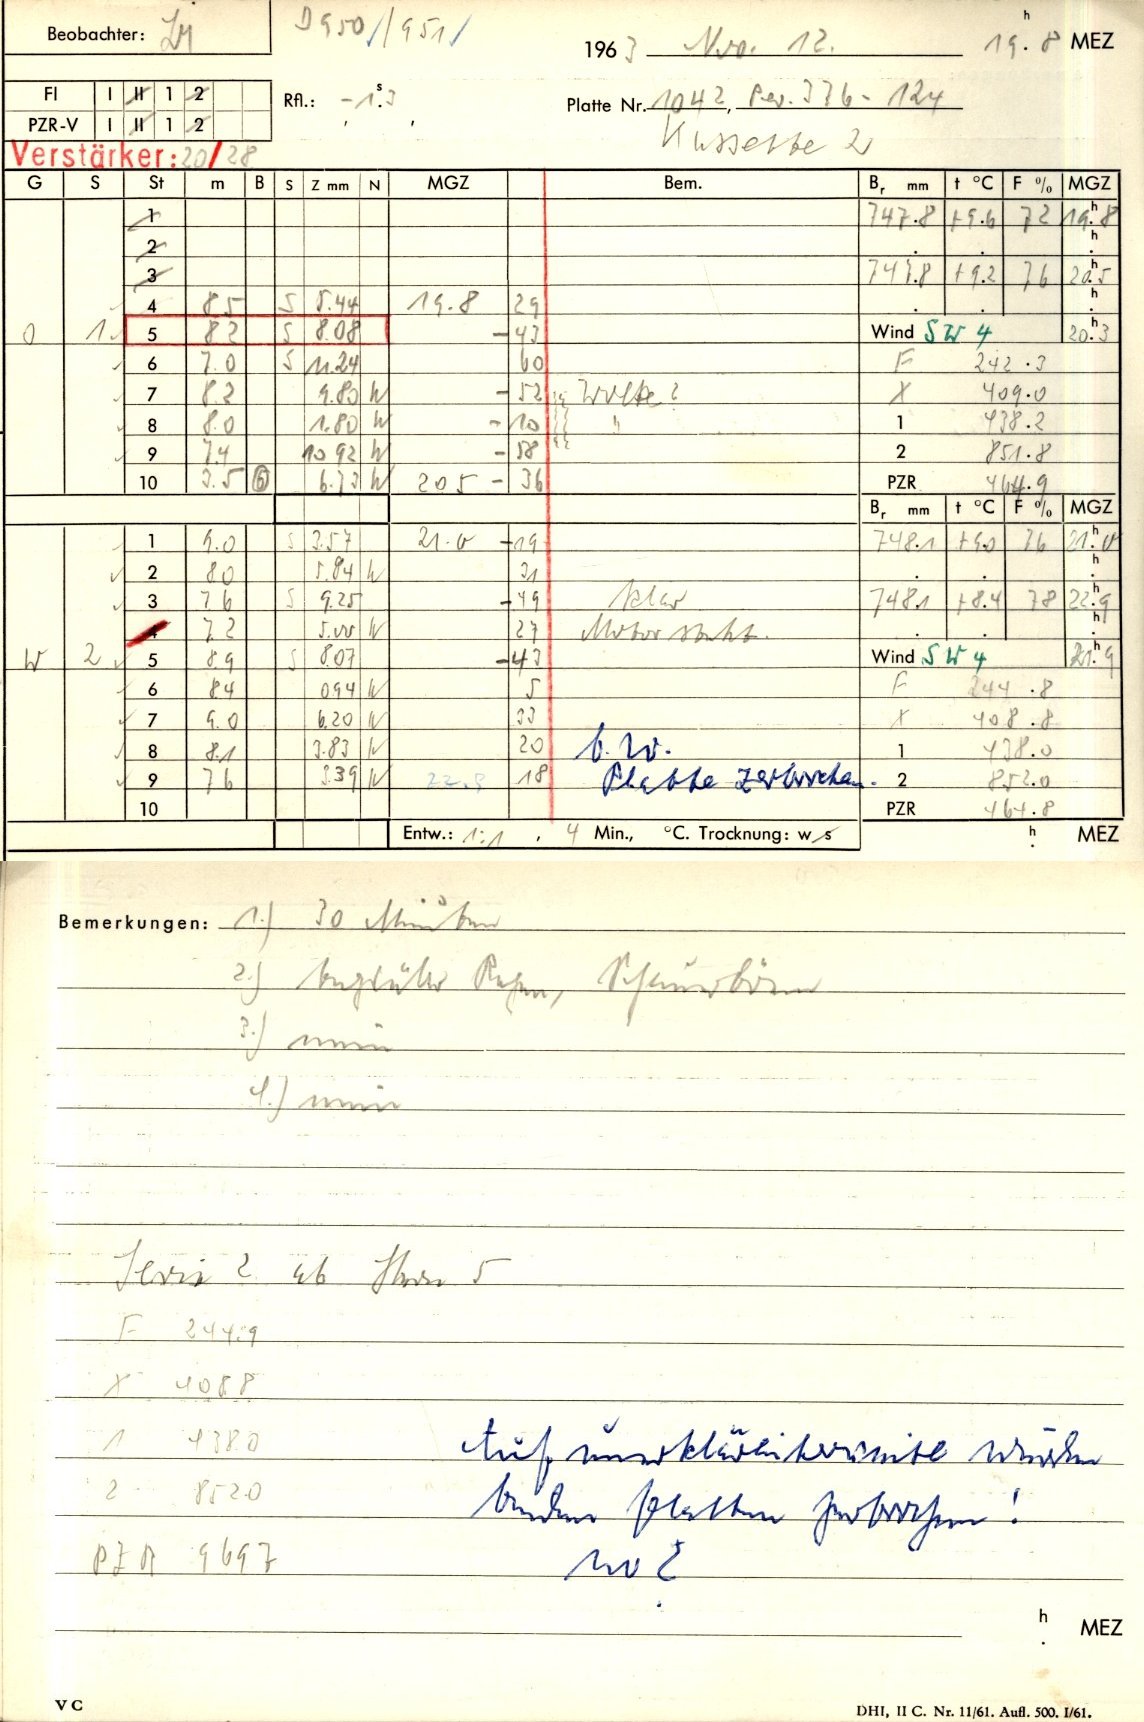 Beobachter:
D950/951/
1963 Nov. 12. 19.h8 MEZ
FI I II 1 2
PZR-V I II 1 2
Rfl.: -1.s3
Platte Nr. 1042, Per. 336-124
Kassette 2
Verstärker: 20/28
G S St m B S Z mm N MGZ Bem. Br mm t °C F % MGZ
1 747.8 +9.6 72 19.h8
2 . . h
3 747.8 +9.2 76 20.h5
4 8.5 S 5.44 19.8 29 . . h
O 1 5 8.2 S 8.08 -43 Wind SW 4 20.h3
6 7.0 S 11.24 60 F 242.3
7 8.2 9.80 W -52 Wolke? X 409.0
8 8.0 1.80 W -10 " 1 438.2
9 7.4 10.92 W -58 2 851.8
10 3.5 6 6.73 W 20.5 -36 PZR 464.9
Br mm t °C F % MGZ
1 9.0 S 3.57 21.0 -19 748.1 +9.0 76 21.h0
2 8.0 5.84 W 31 . . h
3 7.6 S 9.25 -49 klar 748.1 +8.4 78 22.h9
4 7.2 5.00 W 27 Motor steht. . . h
W 2 5 8.9 S 8.07 -43 Wind SW 4 21.h9
6 8.4 0.94 W 5 F 244.8
7 9.0 6.20 W 33 X 408.8
8 8.1 3.83 W 20 b.w. 1 438.0
9 7.6 3.39 W 22.9 18 Platte zerbrochen. 2 852.0
10 PZR 464.8
Entw.: 1:1, 4 Min., °C. Trocknung: w s h MEZ
Bemerkungen: 1.) 30 Minuten
2.) Regen, Schauerböen
3.) nein
4.) nein
Serie 2 ab Stern 5
F 244.9
X 408.8
1 438.0
2 852.0
PZR 969.7
Auf wurden
beiden Platten zerbrochen!
wo?
h MEZ
V C
DHI, II C. Nr. 11/61. Aufl. 500. I/61.